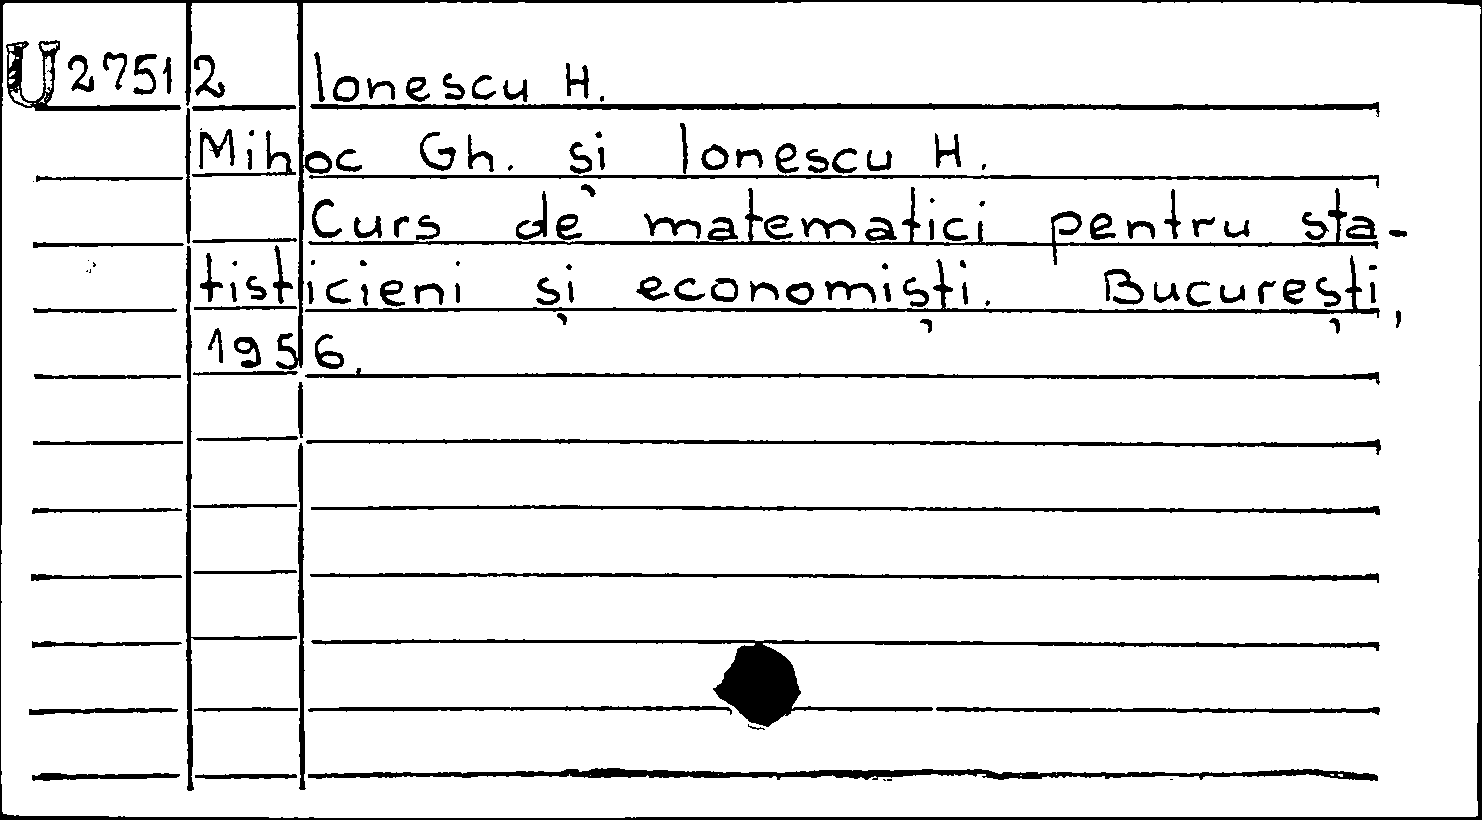 U 27512 Ionescu H.
Mihoc Gh. și Ionescu H.
Curs de matematici pentru sta-
tisticieni și economiști. București,
1956.